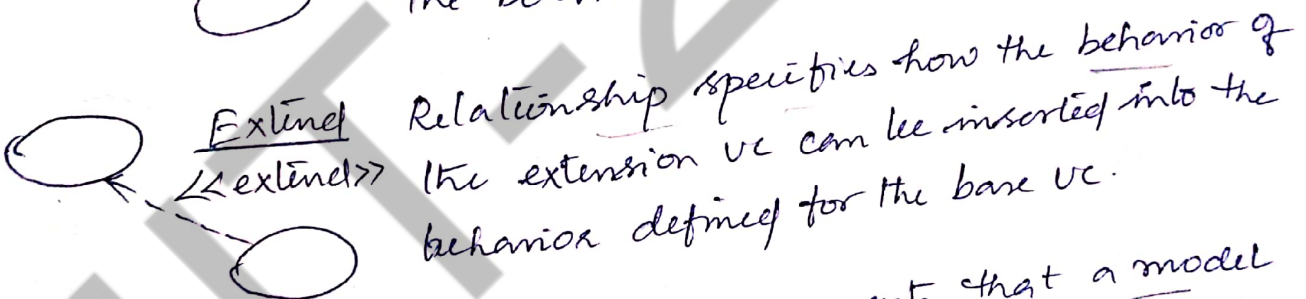 Extend Relationship specifies how the behavior of
<<extend>> the extension UC can be inserted into the
behavior defined for the base UC.
that a model